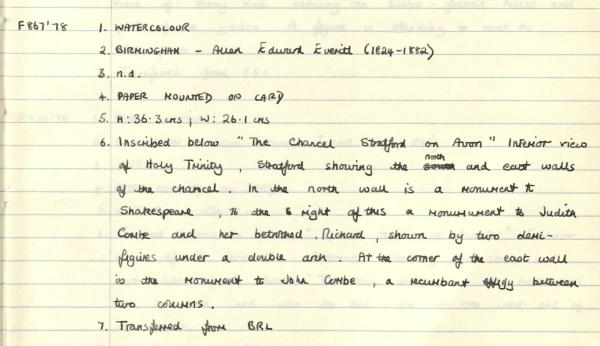 F867'78 1. WATERCOLOUR
2. BIRMINGHAM - Allen Edward Everitt (1824-1882)
3. n.d.
4. PAPER MOUNTED ON CARD
5. H: 36.3 cms ; W: 26.1 cms
6. Inscribed below "The Chancel Stratford on Avon" Interior view
of Holy Trinity, Stratford showing the south north and east walls
of the chancel. In the north wall is a monument to
Shakespeare, to the right of this a monument to Judith
Combe and her betrothed, Richard, shown by two demi-
figures under a double arch. At the corner of the east wall
is the monument to John Combe, a recumbant effigy between
two columns.
7. Transferred from BRL